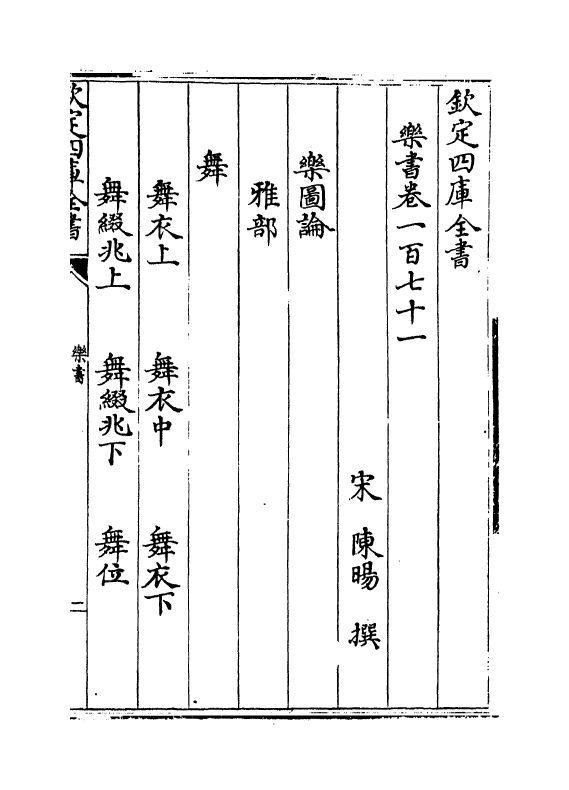 欽定四庫全書
樂書卷一百七十一
宋 陳暘 撰
樂圖論
雅部
舞
舞衣上 舞衣中 舞衣下
舞綴兆上 舞綴兆下 舞位
欽定四庫全書 樂書 二